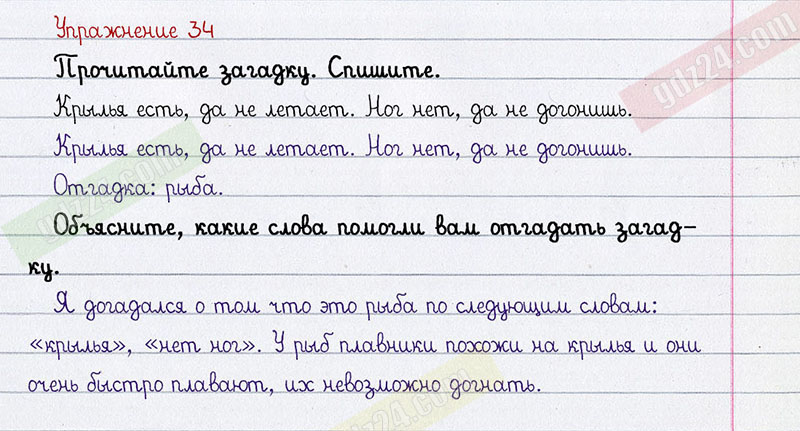 Упражнение 34
Прочитайте загадку. Спишите.
Крылья есть, да не летает. Ног нет, да не догонишь.
Крылья есть, да не летает. Ног нет, да не догонишь.
Отгадка: рыба.
Объясните, какие слова помогли вам отгадать загад-
ку.
Я догадался о том что это рыба по следующим словам:
«крылья», «нет ног». У рыб плавники похожи на крылья и они
очень быстро плавают, их невозможно догнать.
gdz24.com
gdz24.com
gdz24.com